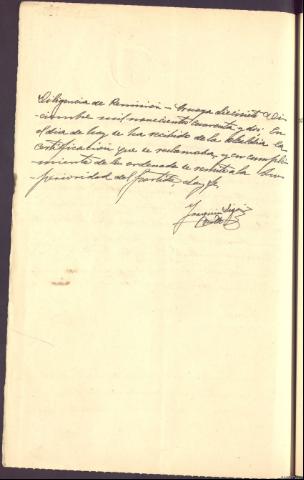 Diligencia de Remisión - Azuaga diecisiete Di-
ciembre mil novecientos cuarenta y dos. En
el día de hoy se ha recibido de la Alcaldía la
certificación que se reclamaba, y en cumpli-
miento de lo ordenado se remite a la Su-
perioridad del Partido, doy fe.
Joaquin